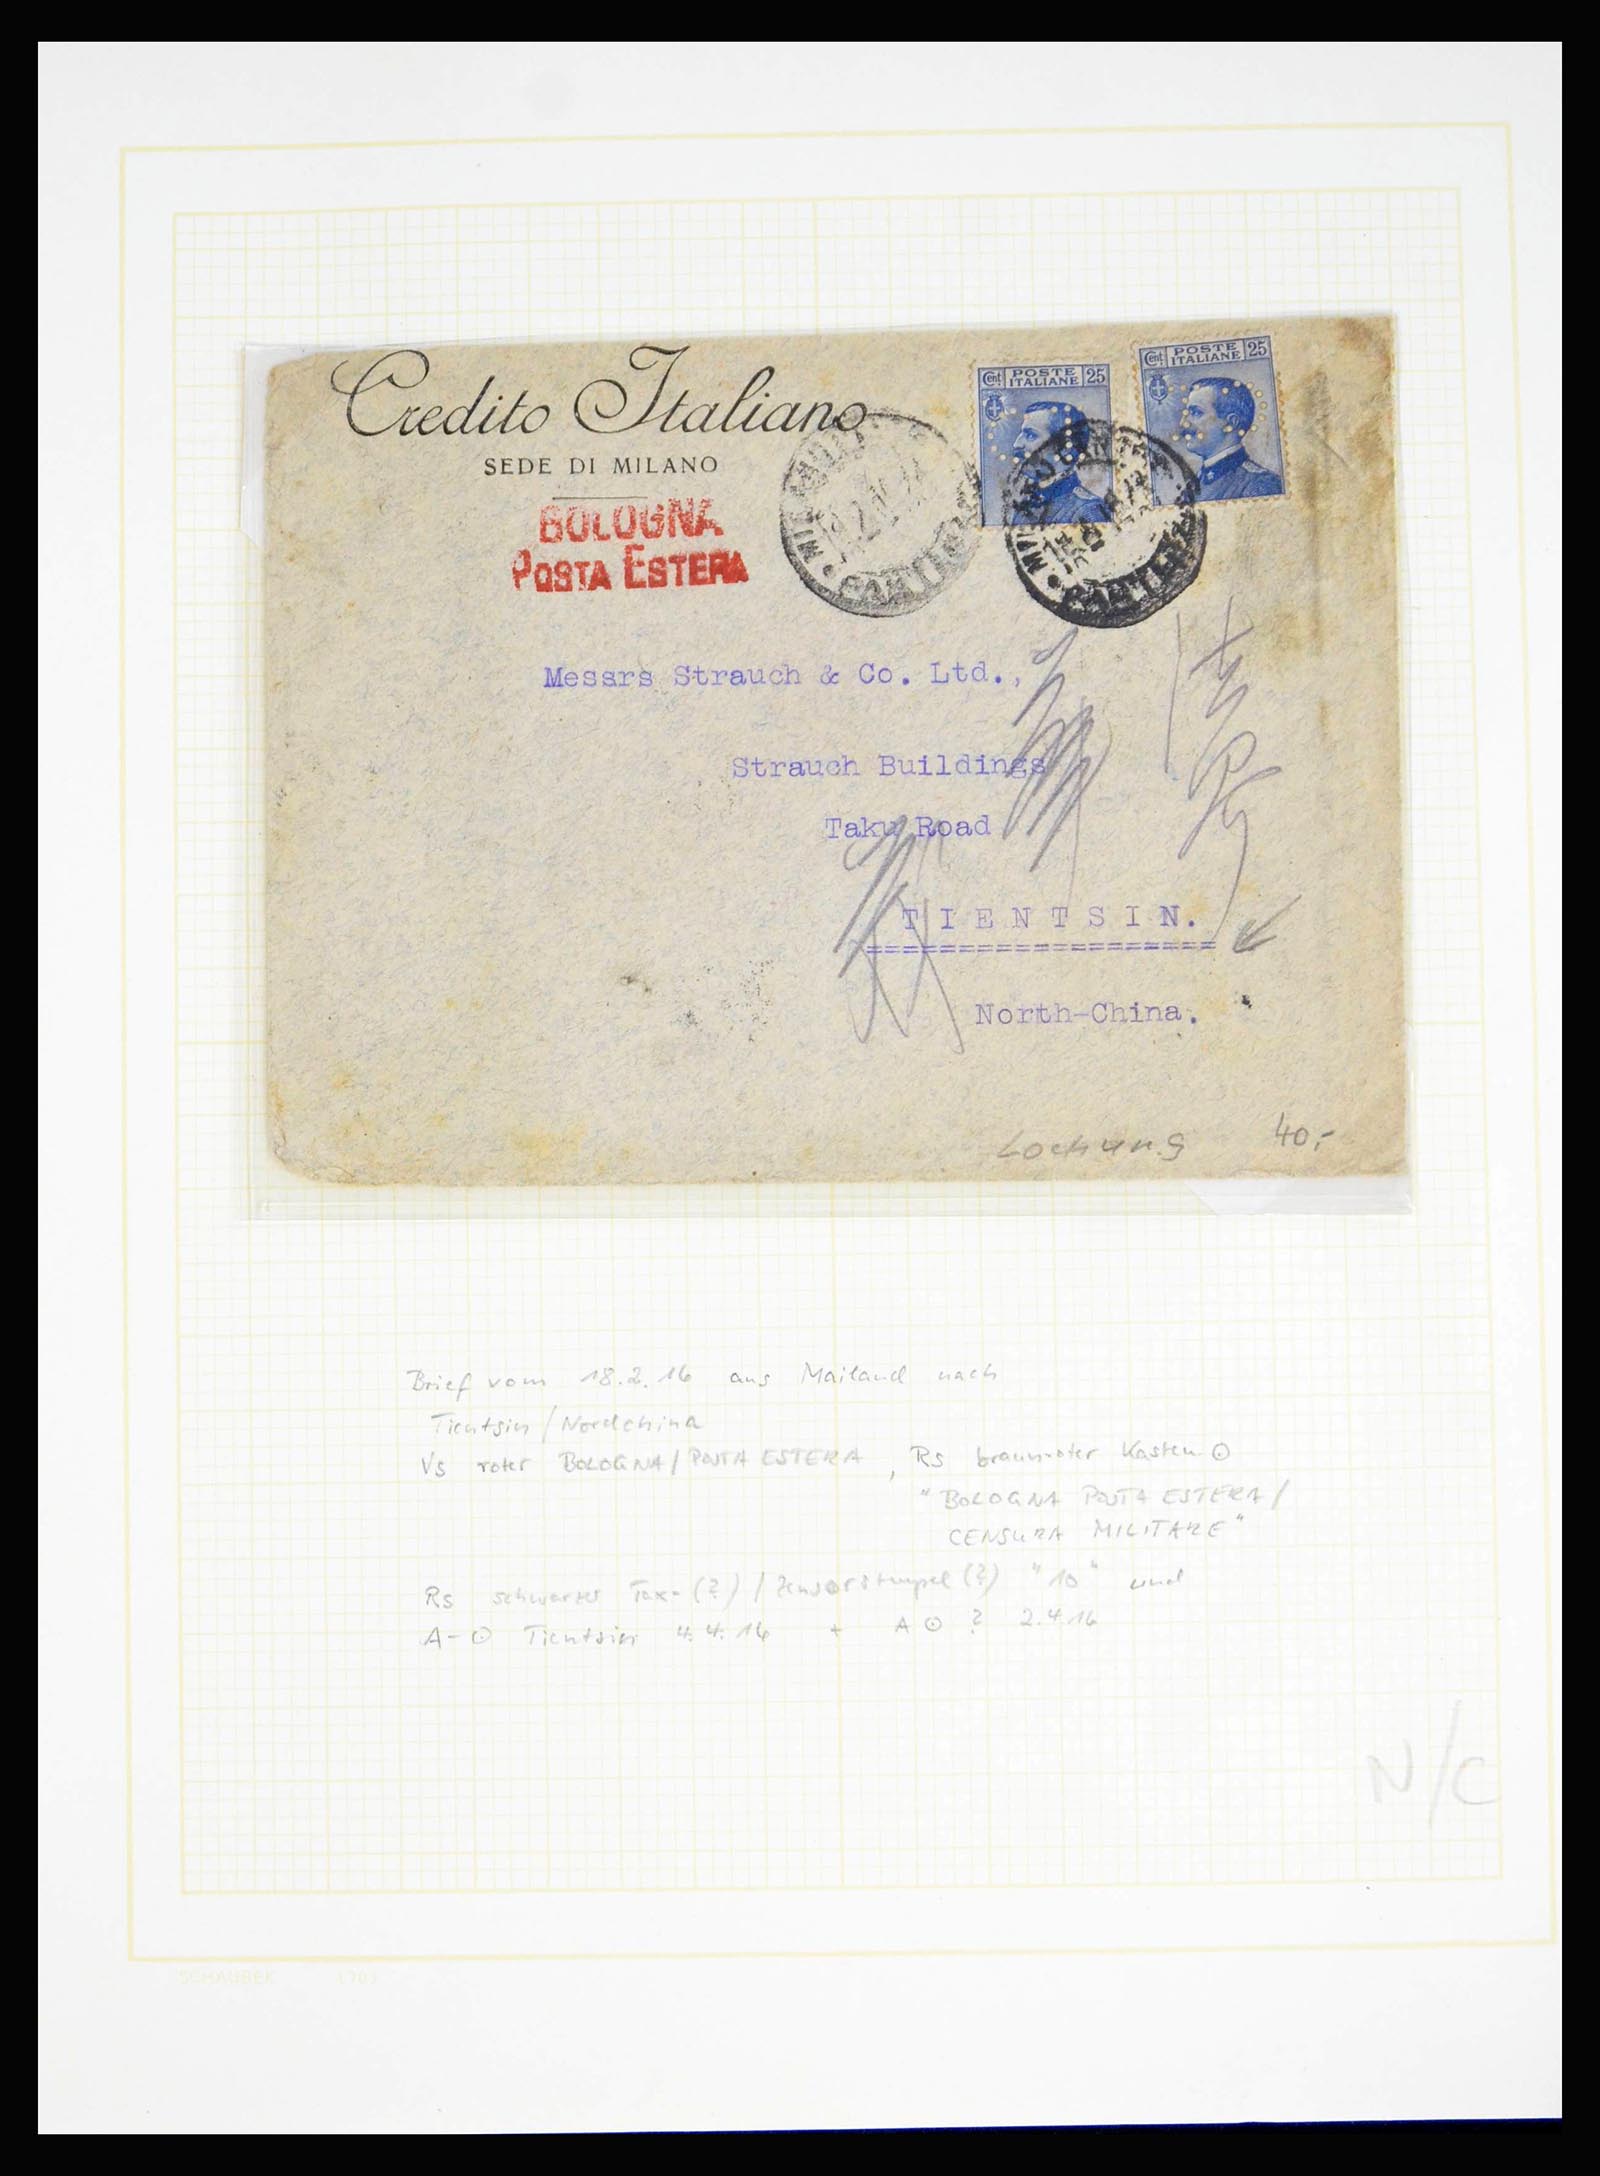 Credito Italiano
SEDE DI MILANO
BOLOGNA
POSTA ESTERA
Cent POSTE ITALIANE 25
Cent POSTE ITALIANE 25
Messrs Strauch & Co. Ltd.,
Strauch Buildings
Taku Road
TIENTSIN.
North-China.
Lochung 40,-
Brief vom 18.2.16 aus Mailand nach
Tientsin / Nordchina
Vs roter BOLOGNA / POSTA ESTERA, Rs braunroter Kasten ⊙
"BOLOGNA POSTA ESTERA /
CENSURA MILITARE"
Rs schwarzer Tax-(?) / Zensorstempel (?) "10" und
A-⊙ Tientsin 4.4.16 + A ⊙ ? 2.4.16
N/C
SCHAUBEK